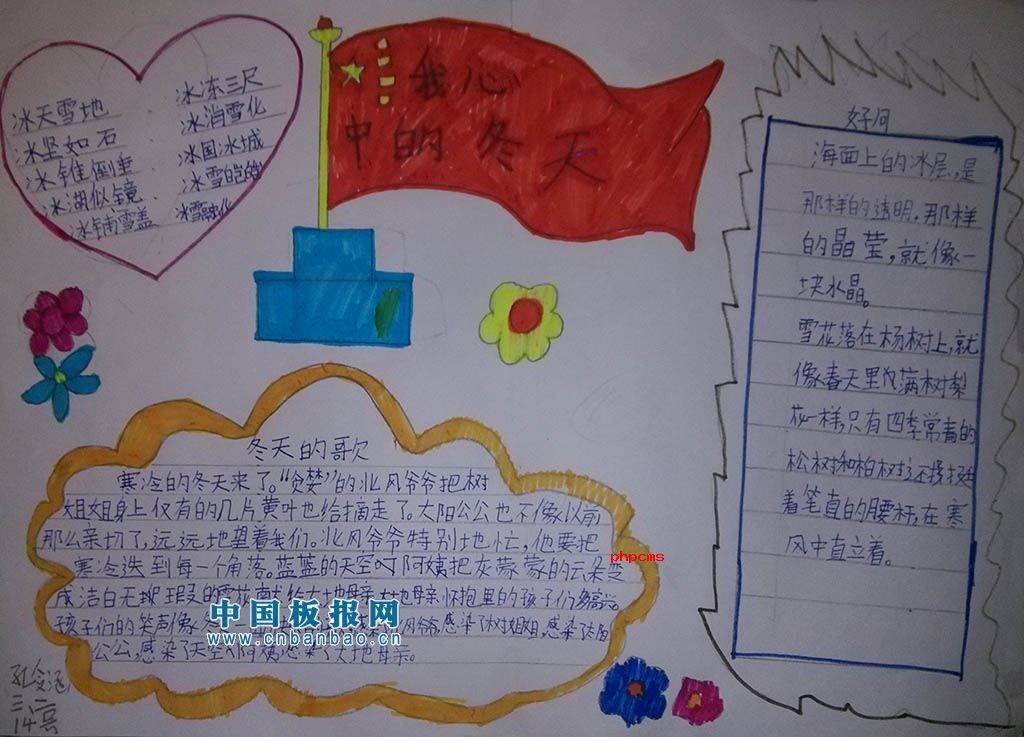 我心
中的冬天
冰天雪地
冰坚如石
冰锥倒垂
冰湖似镜
冰铺雪盖
冰冻三尺
冰消雪化
冰国冰城
冰雪皑皑
冰雪融化
好词
海面上的冰层,是
那样的透明,那样
的晶莹,就像一
块水晶。
雪花落在杨树上,就
像春天里的满树梨
花一样,只有四季常青的
松树和柏树还挺拔
着笔直的腰杆,在寒
风中直立着。
冬天的歌
寒冷的冬天来了。“贪婪”的北风爷爷把树
姐姐身上仅有的几片黄叶也给摘走了。太阳公公也不像以前
那么亲切了,远远地望着我们。北风爷爷特别地忙,他要把
寒冷送到每一个角落。蓝蓝的天空阿姨把灰蒙蒙的云朵变
成洁白无瑕的雪花献给大地母亲,大地母亲怀抱里的孩子们多高兴。
孩子们的笑声像冬 感染了树姐姐,感染了太阳
公公,感染了天空阿姨,感染了大地母亲。
phpcms
中国板报网
www.cnbanbao.cn
三、二
14号